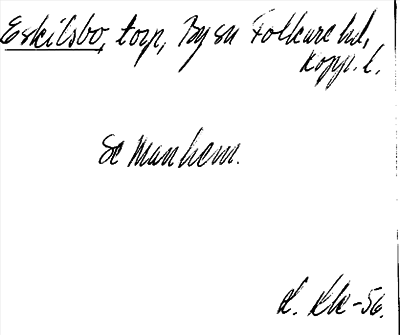 Eskilsbo, torp, By sn Folkare hd,
Kopp. l.
Se Manhem.
K. Kk -56.